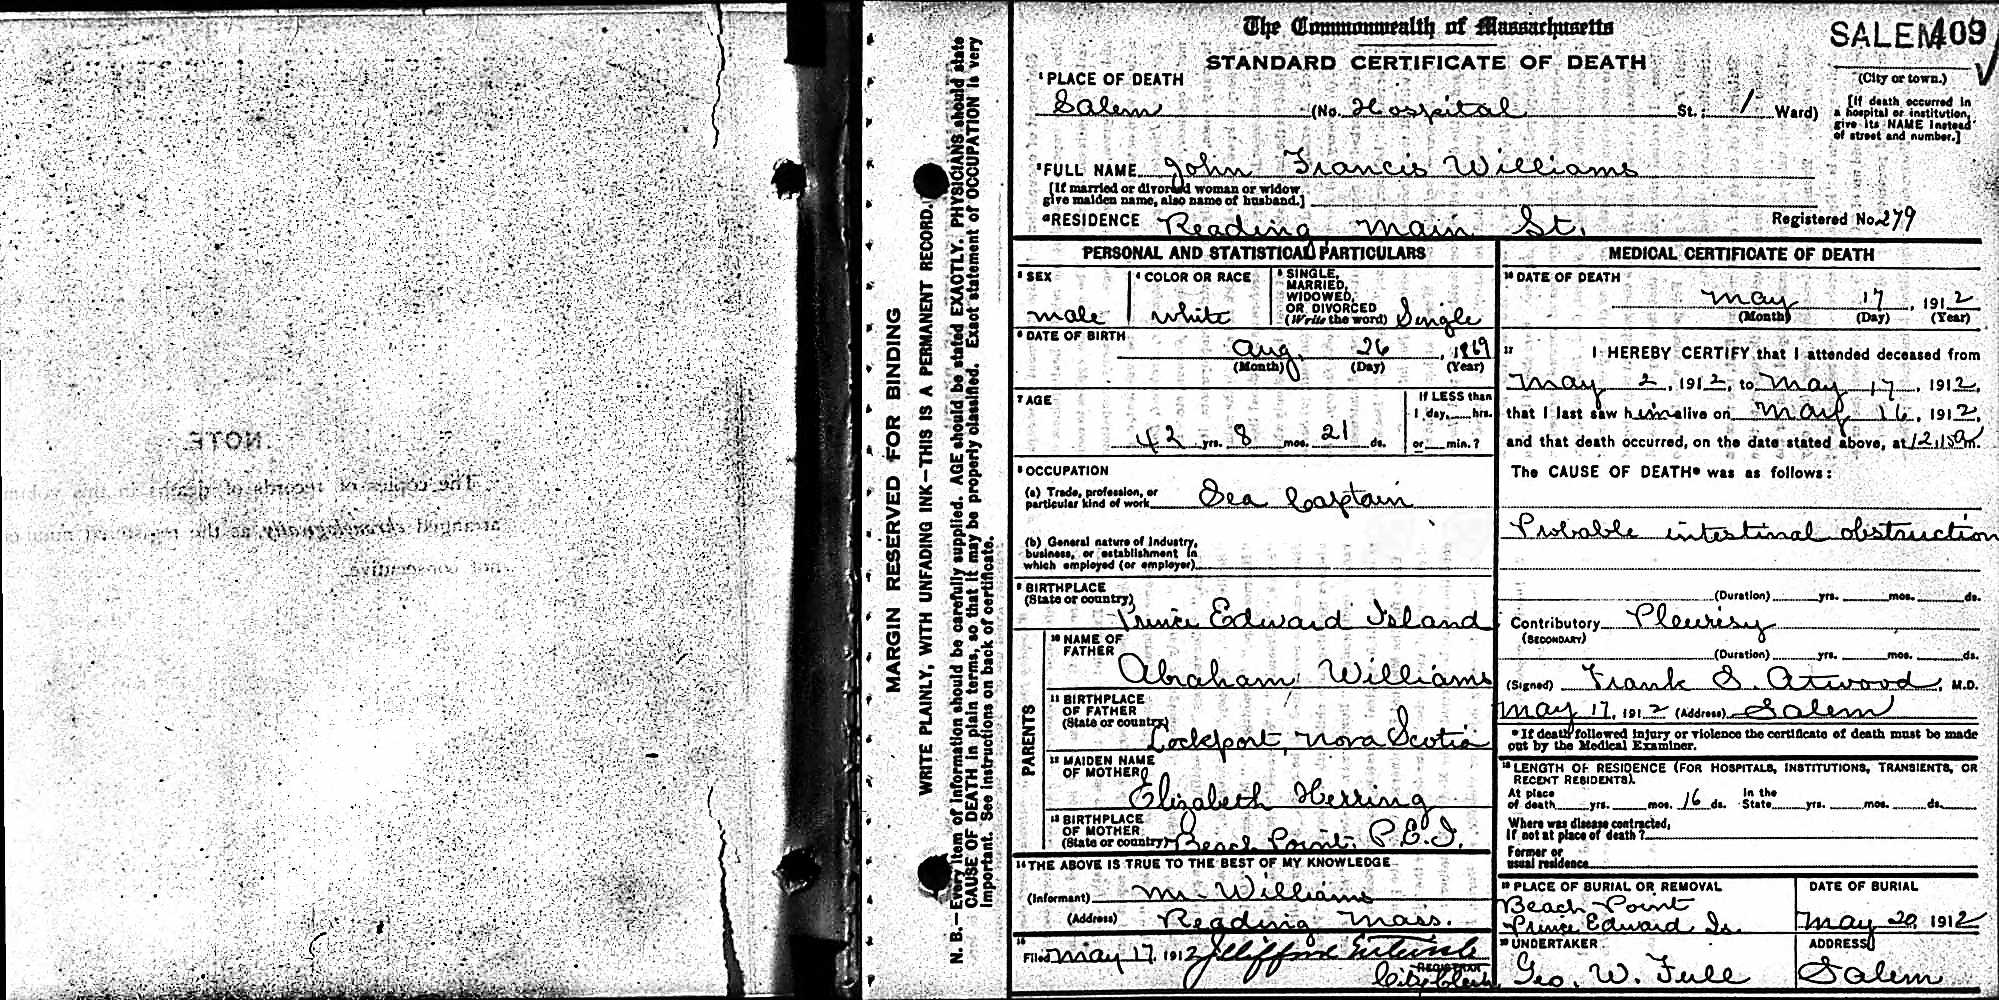 NOTE
The copies of records of deaths in this volum
arranged chronologically as the registered num
not consecutive.
MARGIN RESERVED FOR BINDING
WRITE PLAINLY, WITH UNFADING INK—THIS IS A PERMANENT RECORD.
N. B.—Every item of information should be carefully supplied. AGE should be stated EXACTLY. PHYSICIANS should state
CAUSE OF DEATH in plain terms, so that it may be properly classified. Exact statement of OCCUPATION is very
important. See instructions on back of certificate.
The Commonwealth of Massachusetts
STANDARD CERTIFICATE OF DEATH
SALEM 409
(City or town.)
1 PLACE OF DEATH
Salem (No. Hospital St.; 1 Ward)
[If death occurred in
a hospital or institution,
give its NAME instead
of street and number.]
2 FULL NAME John Francis Williams
[If married or divorced woman or widow
give maiden name, also name of husband.]
RESIDENCE Reading Main St. Registered No. 279
PERSONAL AND STATISTICAL PARTICULARS
3 SEX
male
4 COLOR OR RACE
white
5 SINGLE,
MARRIED,
WIDOWED,
OR DIVORCED
(Write the word) Single
6 DATE OF BIRTH
Aug. 26, 1869
(Month) (Day) (Year)
7 AGE
42 yrs. 8 mos. 21 ds.
If LESS than
1 day, hrs.
or min.?
8 OCCUPATION
(a) Trade, profession, or
particular kind of work Sea Captain
(b) General nature of industry,
business, or establishment in
which employed (or employer)
9 BIRTHPLACE
(State or country)
Prince Edward Island
PARENTS
10 NAME OF
FATHER
Abraham Williams
11 BIRTHPLACE
OF FATHER
(State or country)
Lockport, Nova Scotia
12 MAIDEN NAME
OF MOTHER
Elizabeth Herring
13 BIRTHPLACE
OF MOTHER
(State or country) Beach Point, P.E.I.
14 THE ABOVE IS TRUE TO THE BEST OF MY KNOWLEDGE
(Informant) Mr. Williams
(Address) Reading Mass.
15
Filed May 17, 1912
REGISTRAR
City Clerk
MEDICAL CERTIFICATE OF DEATH
16 DATE OF DEATH
May 17, 1912
(Month) (Day) (Year)
17 I HEREBY CERTIFY that I attended deceased from
May 2, 1912, to May 17, 1912,
that I last saw him alive on May 16, 1912,
and that death occurred, on the date stated above, at 12.15 am.
The CAUSE OF DEATH* was as follows:
Probable intestinal obstruction
(Duration) yrs. mos. ds.
Contributory Pleurisy
(SECONDARY)
(Duration) yrs. mos. ds.
(Signed) Frank S. Atwood, M.D.
May 17, 1912 (Address) Salem
* If death followed injury or violence the certificate of death must be made
out by the Medical Examiner.
18 LENGTH OF RESIDENCE (FOR HOSPITALS, INSTITUTIONS, TRANSIENTS, OR
RECENT RESIDENTS).
At place In the
of death yrs. mos. 16 ds. State yrs. mos. ds.
Where was disease contracted,
If not at place of death?
Former or
usual residence
19 PLACE OF BURIAL OR REMOVAL
Beach Point
Prince Edward Is.
DATE OF BURIAL
May 20, 1912
20 UNDERTAKER
Geo. W. Full
ADDRESS
Salem